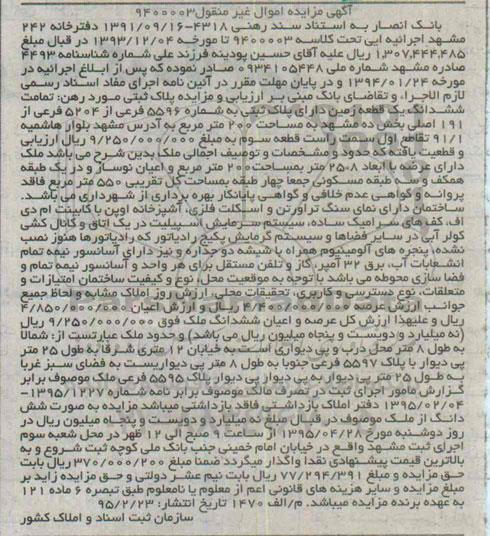 آگهی مزایده اموال غیر منقول ۹۴۰۰۰۰۳
بانک انصار به استناد سند رهنی ۴۳۱۸-۱۳۹۱/۰۹/۱۶ دفترخانه ۲۴۲
مشهد اجرائیه ایی تحت کلاسه ۹۴۰۰۰۰۳ تا مورخه ۱۳۹۳/۱۲/۰۴ در قبال مبلغ
۱,۳۰۷,۴۴۴,۴۸۵ ریال علیه آقای حسین پودینه فرزند علی شماره شناسنامه ۴۴۹۳
صادره مشهد شماره ملی ۰۹۳۴۱۰۵۴۴۸ صادر نموده که پس از ابلاغ اجرائیه در
مورخه ۱۳۹۴/۰۱/۲۴ و در پایان مهلت مقرر در آئین نامه اجرای مفاد اسناد رسمی
لازم الاجراء و تقاضای بانک مبنی بر ارزیابی و مزایده پلاک ثبتی مورد رهن: تمامت
ششدانگ یک قطعه زمین دارای پلاک ثبتی به شماره ۵۵۹۶ فرعی از ۵۲۰۴ فرعی از
۱۹۱ اصلی بخش ده مشهد به مساحت ۲۰۰ متر مربع به آدرس مشهد بلوار هاشمیه
۹۱/۱ تقاطع اول سمت راست قطعه سوم به مبلغ ۹/۲۵۰/۰۰۰/۰۰۰ ریال ارزیابی
و قطعیت یافته که حدود و مشخصات و توصیف اجمالی ملک بدین شرح می باشد ملک
دارای عرصه با ابعاد ۲۵۰۸ متر بمساحت ۲۰۰ متر مربع و اعیان نوساز و در یک طبقه
همکف و سه طبقه مسکونی جمعا چهار طبقه بمساحت کل تقریبی ۵۵۰ متر مربع فاقد
پروانه و گواهی عدم خلافی و گواهی پایانکار بهره برداری از شهرداری می باشد.
ساختمان دارای نمای سنگ تراورتن و اسکلت فلزی، آشپزخانه اوپن با کابینت ام دی
اف، کف های سرامیک ساده، سیستم سرمایش اسپیلیت در یک اتاق و کانال کشی
کولر آبی در سایر فضاها و سیستم گرمایش پکیج رادیاتور که رادیاتورها هنوز نصب
نشده، پنجره های آلومینیوم همراه با شیشه دو جداره و نیز دارای آسانسور نیمه تمام
انشعابات آب، برق ۳۲ آمپر، گاز و تلفن مستقل برای هر واحد و آسانسور نیمه تمام و
فضا سازی محوطه می باشد با توجه به موقعیت محل، نوع و کیفیت ساختمان امتیازات و
متعلقات، نوع دسترسی و کاربری، تحقیقات محلی، ارزش روز املاک مشابه و لحاظ جمیع
جوانب ارزش عرصه ۴/۴۰۰/۰۰۰/۰۰۰ ریال و ارزش اعیان ۴/۸۵۰/۰۰۰/۰۰۰
ریال و علیهذا ارزش کل عرصه و اعیان ششدانگ ملک فوق ۹/۲۵۰/۰۰۰/۰۰۰ ریال
(نه میلیارد و دویست و پنجاه میلیون ریال می باشد) و حدود ملک عبارتست از: شمالا
به طول ۸ متر محل درب و پی دیواری است به خیابان ۱۲ متری شرقا به طول ۲۵ متر
پی دیوار با پلاک ۵۵۹۷ فرعی جنوبا به طول ۸ متر پی دیواریست به فضای سبز غربا
به طول ۲۵ متر پی دیوار به پی دیوار پلاک ۵۵۹۵ فرعی ملک موصوف برابر
گزارش مامور اجرای ثبت در تصرف مالک موصوف برابر نامه شماره ۱۳۹۵/۱۲۲۷-
۱۳۹۵/۰۲/۰۴ دفتر املاک بازداشتی فاقد بازداشتی میباشد مزایده به صورت شش
دانگ از ملک موصوف در قبال مبلغ نه میلیارد و دویست و پنجاه میلیون ریال در
روز دوشنبه مورخ ۱۳۹۵/۰۴/۲۸ از ساعت ۹ صبح الی ۱۲ ظهر در محل شعبه سوم
اجرای ثبت مشهد واقع در خیابان امام خمینی جنب بانک ملی کوچه ثبت شروع و به
بالاترین قیمت پیشنهادی نقدا واگذار میگردد ضمنا مبلغ ۳۷۰/۰۰۰/۲۰۰ ریال بابت
حق مزایده و مبلغ ۷۷/۲۹۴/۳۹۱ ریال بابت نیم عشر دولتی و حق مزایده زاید بر
مبلغ مزایده و سایر هزینه های قانونی اعم از معلوم یا نامعلوم طبق تبصره ۶ ماده ۱۲۱
به عهده برنده مزایده میباشد. م/الف ۱۴۷۰ تاریخ انتشار: ۹۵/۲/۲۳
سازمان ثبت اسناد و املاک کشور